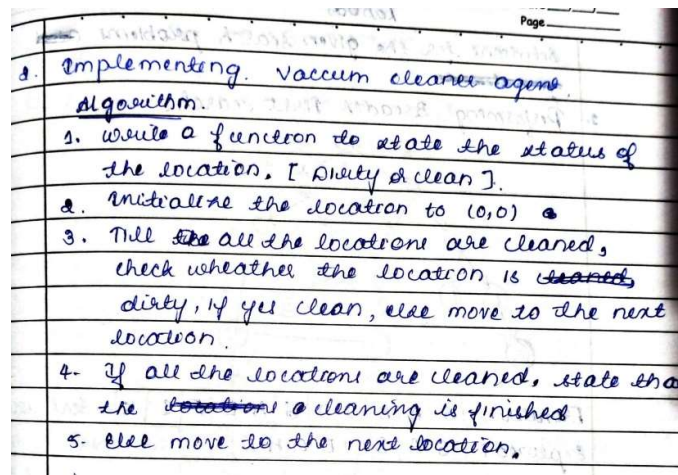 Page
2. Implementing. Vaccum cleaner agent
Algorithm.
1. Write a function to state the status of
the location. [Dirty or clean].
2. Initialize the location to (0,0)
3. Till the all the locations are cleaned,
check wheather the location is cleaned,
dirty, if yes clean, else move to the next
location.
4. If all the locations are cleaned, state tha
the locations cleaning is finished.
5. Else move to the next location.